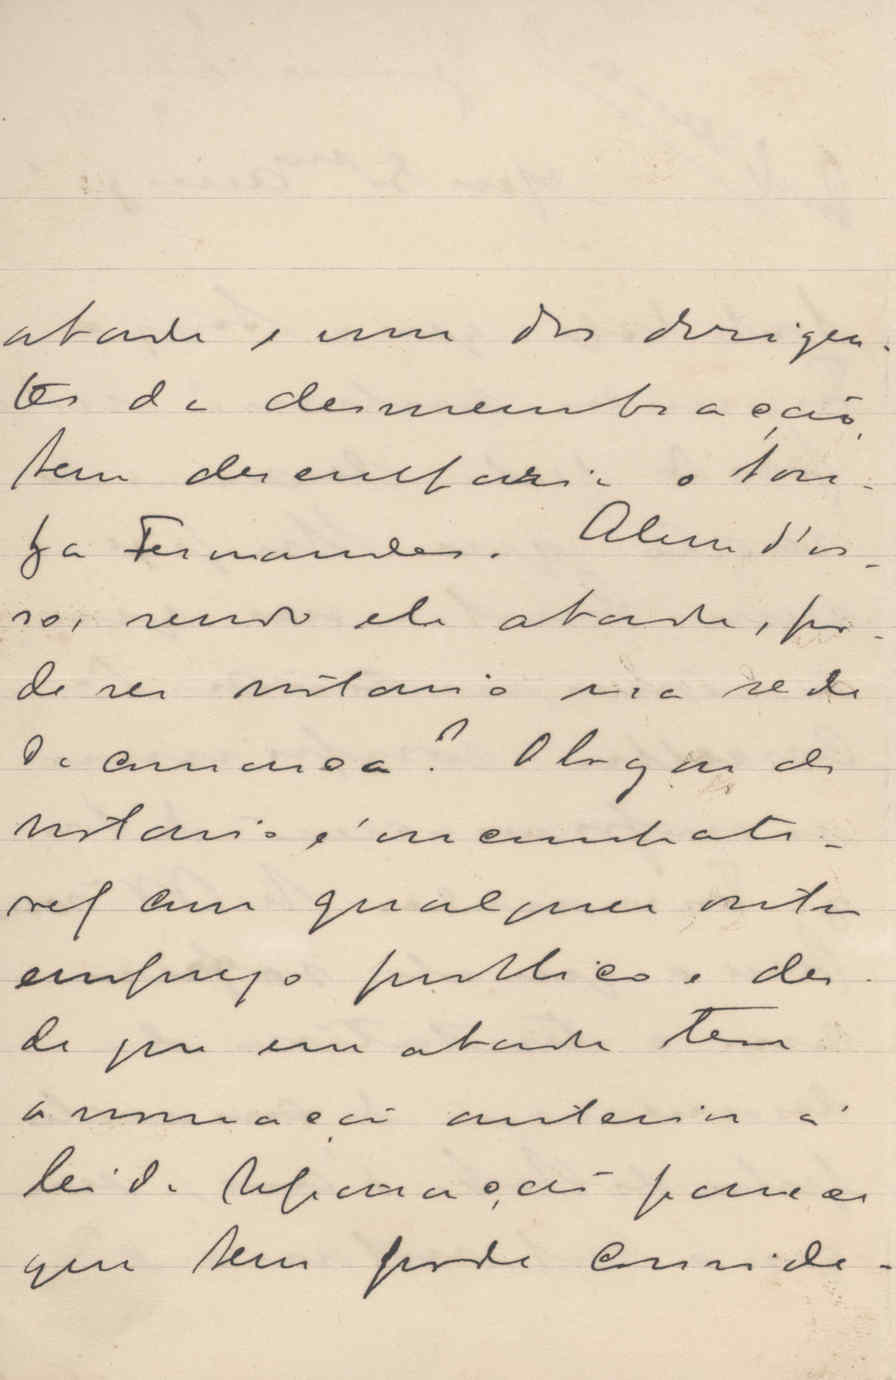 abade e um dos dirigen-
tes da desmembração,
tem de
Fernandes. Alem d'is-
so, sendo ele abade, po-
de ser notario na sede
da comarca? O logar de
notario é incompati-
vel com qualquer outro
emprego publico e des-
de que um abade tem
a nomeação anterior á
lei da Separação parece
que bem pode conside-